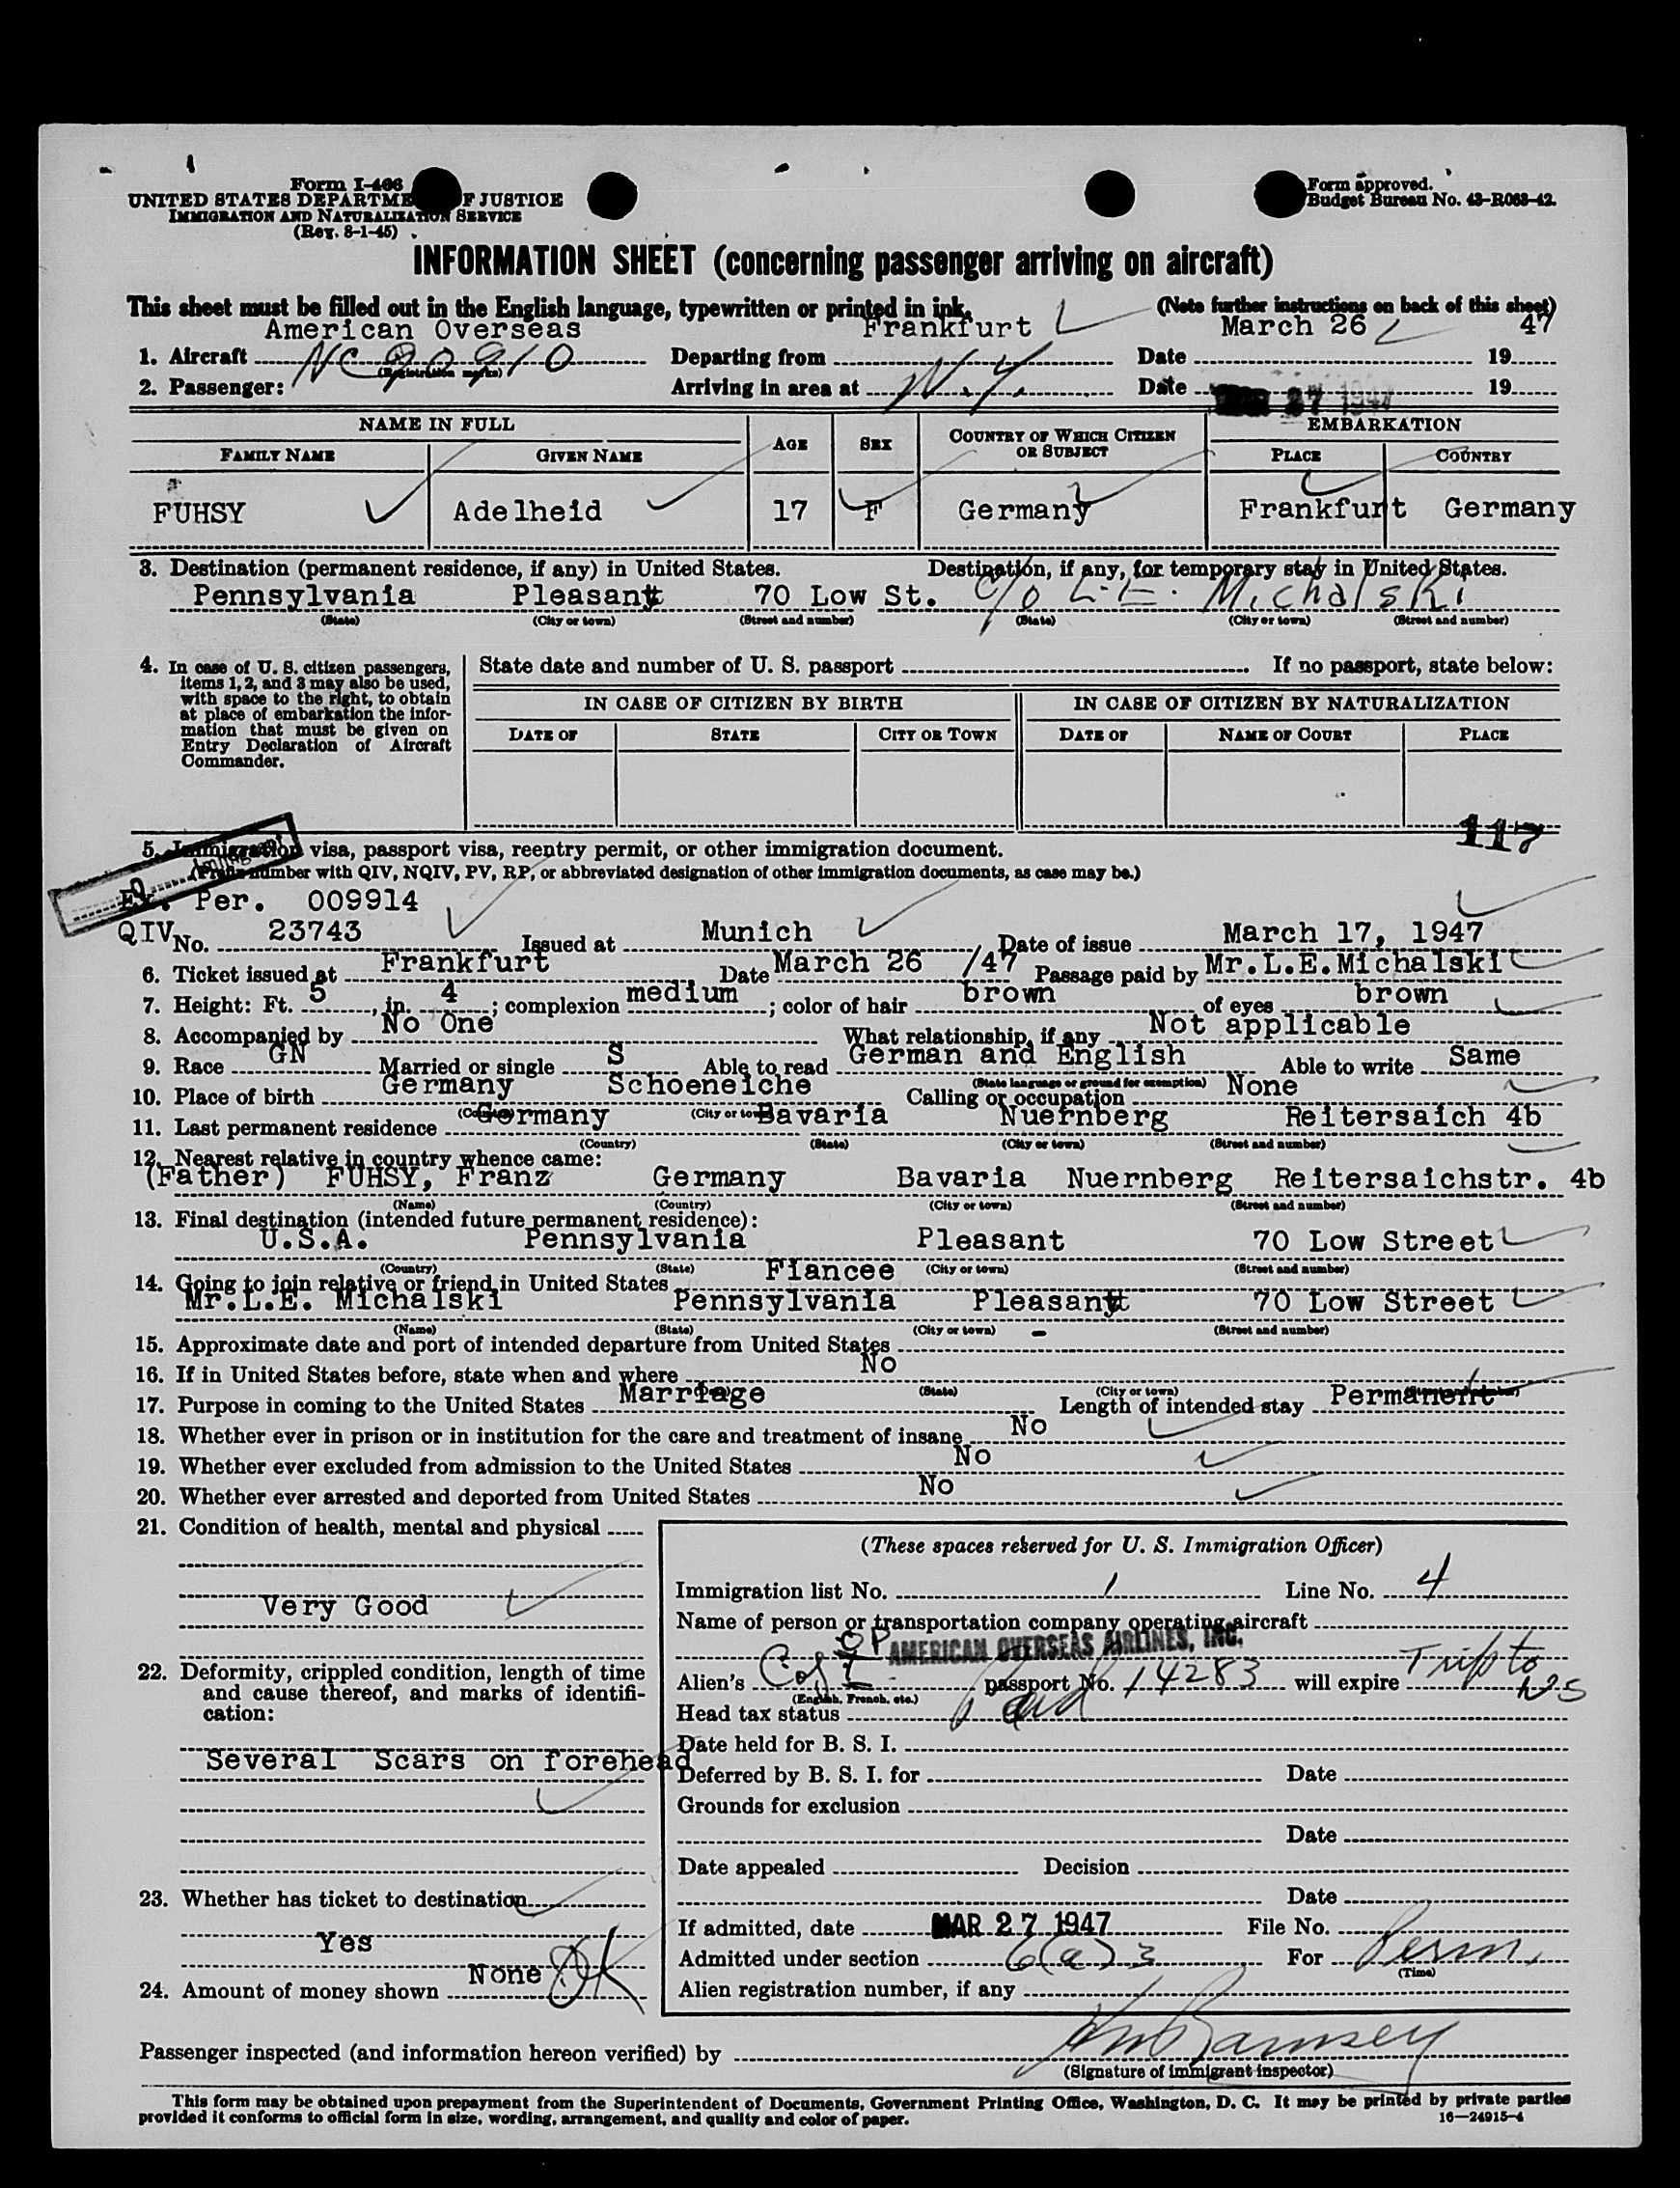 Form I-466
UNITED STATES DEPARTME F JUSTICE
IMMIGRATION AND NATURALIZATION SERVICE
(Rev. 8-1-45)
Form approved.
Budget Bureau No. 43-R063-42.
INFORMATION SHEET (concerning passenger arriving on aircraft)
This sheet must be filled out in the English language, typewritten or printed in ink. (Note further instructions on back of this sheet)
American Overseas Frankfurt March 26 47
1. Aircraft NC 90910 Departing from Date 19
(Registration marks)
2. Passenger: Arriving in area at N.Y. Date MAR 27 1947 19
NAME IN FULL AGE SEX COUNTRY OF WHICH CITIZEN OR SUBJECT EMBARKATION
FAMILY NAME GIVEN NAME PLACE COUNTRY
FUHSY Adelheid 17 F Germany Frankfurt Germany
3. Destination (permanent residence, if any) in United States. Destination, if any, for temporary stay in United States.
Pennsylvania Pleasant 70 Low St. c/o L.E. Michalski
(State) (City or town) (Street and number) (State) (City or town) (Street and number)
4. In case of U. S. citizen passengers, items 1, 2, and 3 may also be used, with space to the right, to obtain at place of embarkation the information that must be given on Entry Declaration of Aircraft Commander.
State date and number of U. S. passport If no passport, state below:
IN CASE OF CITIZEN BY BIRTH IN CASE OF CITIZEN BY NATURALIZATION
DATE OF STATE CITY OR TOWN DATE OF NAME OF COURT PLACE
117
5. Immigration visa, passport visa, reentry permit, or other immigration document.
(Prefix number with QIV, NQIV, PV, RP, or abbreviated designation of other immigration documents, as case may be.)
Ex. Per. 009914
QIV No. 23743 Issued at Munich Date of issue March 17, 1947
6. Ticket issued at Frankfurt Date March 26 /47 Passage paid by Mr.L.E.Michalski
7. Height: Ft. 5, in. 4; complexion medium; color of hair brown of eyes brown
8. Accompanied by No One What relationship, if any Not applicable
9. Race GN Married or single S Able to read German and English Able to write Same
(State language or ground for exemption)
10. Place of birth Germany Schoeneiche Calling or occupation None
(Country) (City or town)
11. Last permanent residence Germany Bavaria Nuernberg Reitersaich 4b
(Country) (State) (City or town) (Street and number)
12. Nearest relative in country whence came:
(Father) FUHSY, Franz Germany Bavaria Nuernberg Reitersaichstr. 4b
(Name) (Country) (City or town) (Street and number)
13. Final destination (intended future permanent residence):
U.S.A. Pennsylvania Pleasant 70 Low Street
(Country) (State) (City or town) (Street and number)
14. Going to join relative or friend in United States Fiancee
Mr.L.E. Michalski Pennsylvania Pleasant 70 Low Street
(Name) (State) (City or town) (Street and number)
15. Approximate date and port of intended departure from United States -
16. If in United States before, state when and where No
(State) (City or town)
17. Purpose in coming to the United States Marriage Length of intended stay Permanent
18. Whether ever in prison or in institution for the care and treatment of insane No
19. Whether ever excluded from admission to the United States No
20. Whether ever arrested and deported from United States No
21. Condition of health, mental and physical
Very Good
22. Deformity, crippled condition, length of time and cause thereof, and marks of identification:
Several Scars on forehead
23. Whether has ticket to destination
Yes
24. Amount of money shown None OK
(These spaces reserved for U. S. Immigration Officer)
Immigration list No. 1 Line No. 4
Name of person or transportation company operating aircraft
AMERICAN OVERSEAS AIRLINES, INC.
Alien's passport No. 14283 will expire Trip to US
(English, French, etc.)
Head tax status Paid
Date held for B. S. I.
Deferred by B. S. I. for Date
Grounds for exclusion
Date
Date appealed Decision
Date
If admitted, date MAR 27 1947 File No.
Admitted under section 6(a)3 For Perm.
(Time)
Alien registration number, if any
Passenger inspected (and information hereon verified) by Ramsey
(Signature of immigrant inspector)
This form may be obtained upon prepayment from the Superintendent of Documents, Government Printing Office, Washington, D. C. It may be printed by private parties
provided it conforms to official form in size, wording, arrangement, and quality and color of paper. 16—24915-4